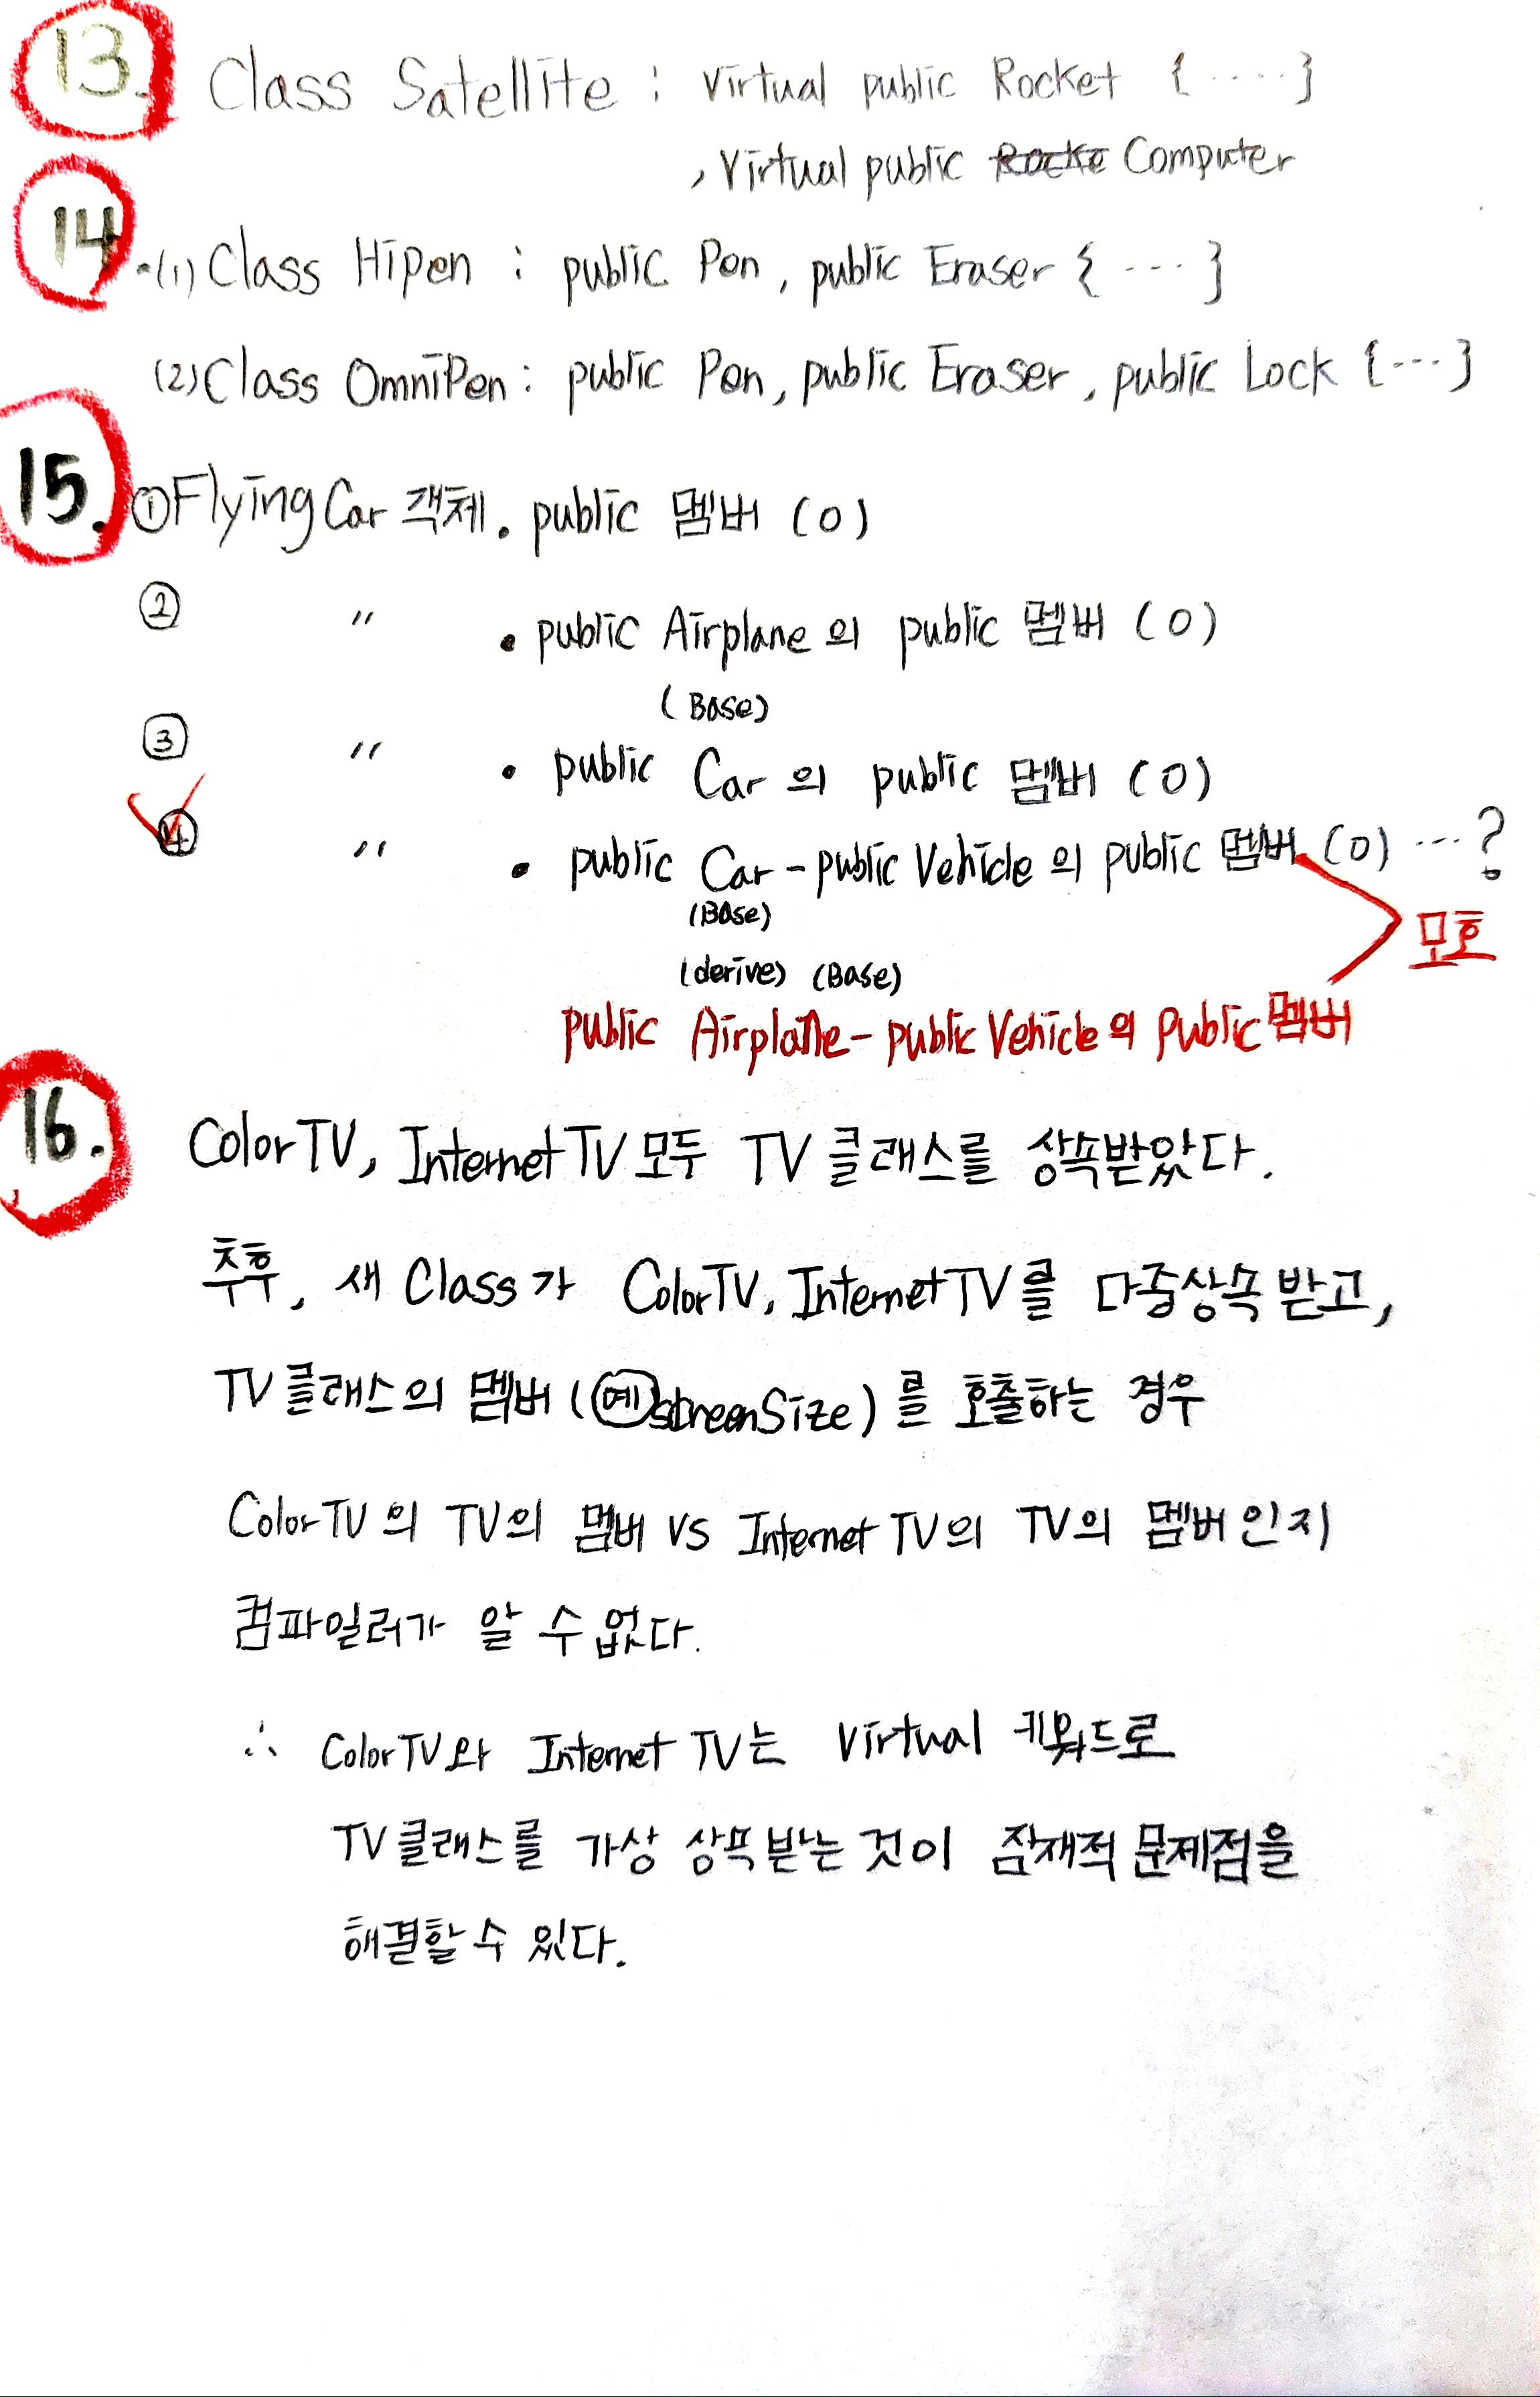 13. Class Satellite : Virtual public Rocket { ····· }
, Virtual public Computer
14. (1) Class Hipen : public Pen , public Eraser { ··· }
(2) Class OmniPen : public Pen, public Eraser , public Lock { ··· }
15. ① FlyingCar 객체 . public 멤버 (O)
② 〃 • public Airplane 의 public 멤버 (O)
(Base)
③ 〃 • public Car 의 public 멤버 (O)
④ 〃 • public Car - public Vehicle 의 public 멤버 (O) ···?
(Base)
모호
(derive) (Base)
public Airplane - public Vehicle 의 public 멤버
16. ColorTV, InternetTV 모두 TV 클래스를 상속받았다.
추후, 새 Class가 ColorTV, InternetTV를 다중상속 받고,
TV 클래스의 멤버 (예 screenSize) 를 호출하는 경우
ColorTV의 TV의 멤버 VS InternetTV의 TV의 멤버인지
컴파일러가 알 수 없다.
∴ ColorTV와 InternetTV는 Virtual 키워드로
TV 클래스를 가상 상속받는 것이 잠재적 문제점을
해결할 수 있다.